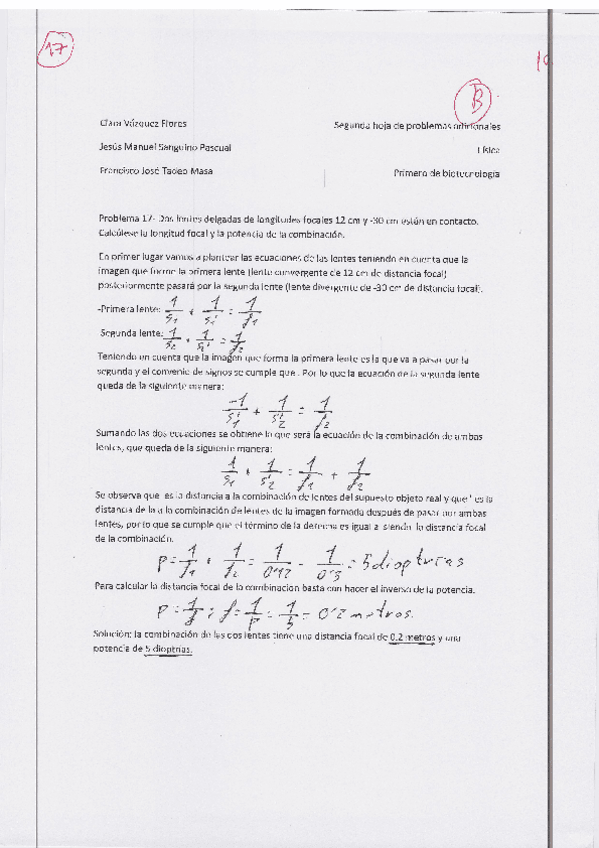 17
B
Clara Vázquez Flores
Segunda hoja de problemas adicionales
Jesús Manuel Sanguino Pascual
Física
Francisco José Tadeo Masa
Primero de biotecnología
Problema 17- Dos lentes delgadas de longitudes focales 12 cm y -30 cm están en contacto.
Calcúlese la longitud focal y la potencia de la combinación.
En primer lugar vamos a plantear las ecuaciones de las lentes teniendo en cuenta que la
imagen que forme la primera lente (lente convergente de 12 cm de distancia focal)
posteriormente pasará por la segunda lente (lente divergente de -30 cm de distancia focal).
-Primera lente: 1/s1 + 1/s1' = 1/f1
Segunda lente: 1/s2 + 1/s2' = 1/f2
Teniendo en cuenta que la imagen que forma la primera lente es la que va a pasar por la
segunda y el convenio de signos se cumple que . Por lo que la ecuación de la segunda lente
queda de la siguiente manera:
-1/s1' + 1/s2' = 1/f2
Sumando las dos ecuaciones se obtiene lo que será la ecuación de la combinación de ambas
lentes, que queda de la siguiente manera:
1/s1 + 1/s2' = 1/f1 + 1/f2
Se observa que es la distancia a la combinación de lentes del supuesto objeto real y que ' es la
distancia de la a la combinación de lentes de la imagen formada después de pasar por ambas
lentes, por lo que se cumple que el término de la derecha es igual a siendo la distancia focal
de la combinación.
P = 1/f1 + 1/f2 = 1/0'12 - 1/0'3 = 5 dioptrias
Para calcular la distancia focal de la combinación basta con hacer el inverso de la potencia.
P = 1/f ; f = 1/P = 1/5 = 0'2 metros.
Solución: la combinación de las dos lentes tiene una distancia focal de 0.2 metros y una
potencia de 5 dioptrías.